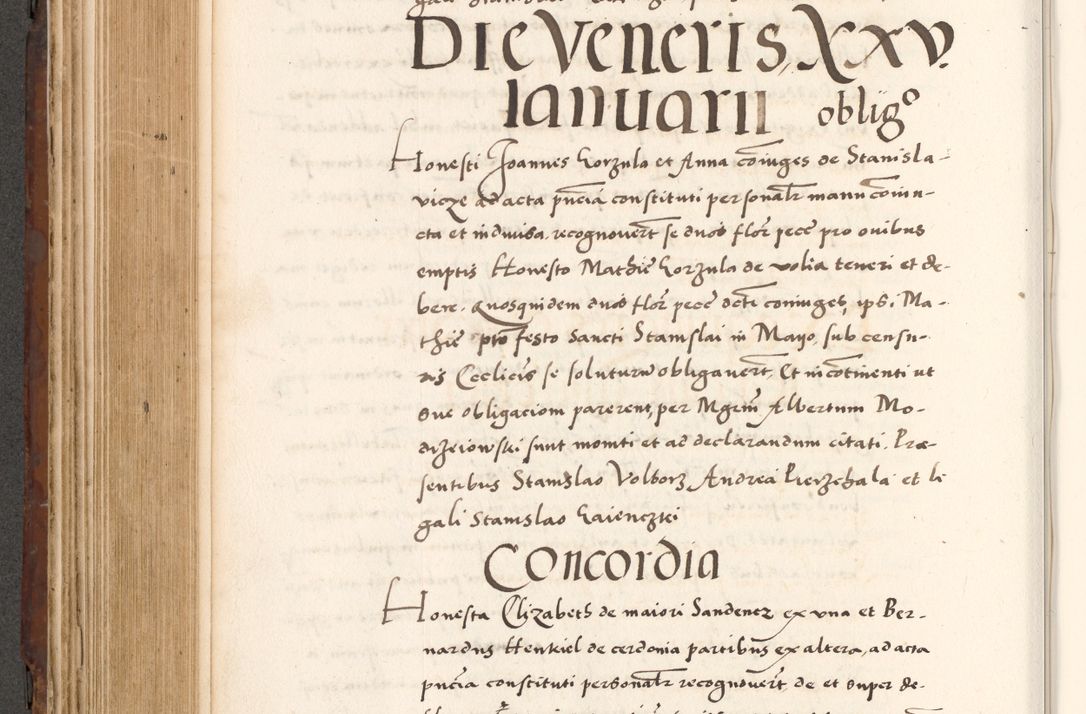 Die Veneris, XXV.
Ianuarii obligº
Honesti Joannes Gorzula et Anna coniuges de Stanisla-
vicze ad acta pñcia constituti personalr manu coniun-
cta et indiuisa. recognouert se duos flor pecc pro ouibus
emptis Honesto Mathie Gorzula de volia teneri et de-
bere. Quosquidem duos flor pecc dcti coniuges, ipsi Ma-
thie pro festo Sancti Stanislai in Mayo, sub censu-
ris Ecclicis se soluturos obligauert, Et in cotinenti ut
sue obligaciom parerent, per Mgrm Albertum Mo-
drzeiowski sunt momti et ad declarandum citati. Præ-
sentibus Stanislao Volborz Andrea Pierzchala et le
gali Stanislao Gaienczki
Concordia
Honesta Elizabeth de maiori Sandencz ex vna et Ber-
nardus Henkiel de cerdonia partibus ex altera, ad acta
pñcia constituti personalr recognouert de et super de-